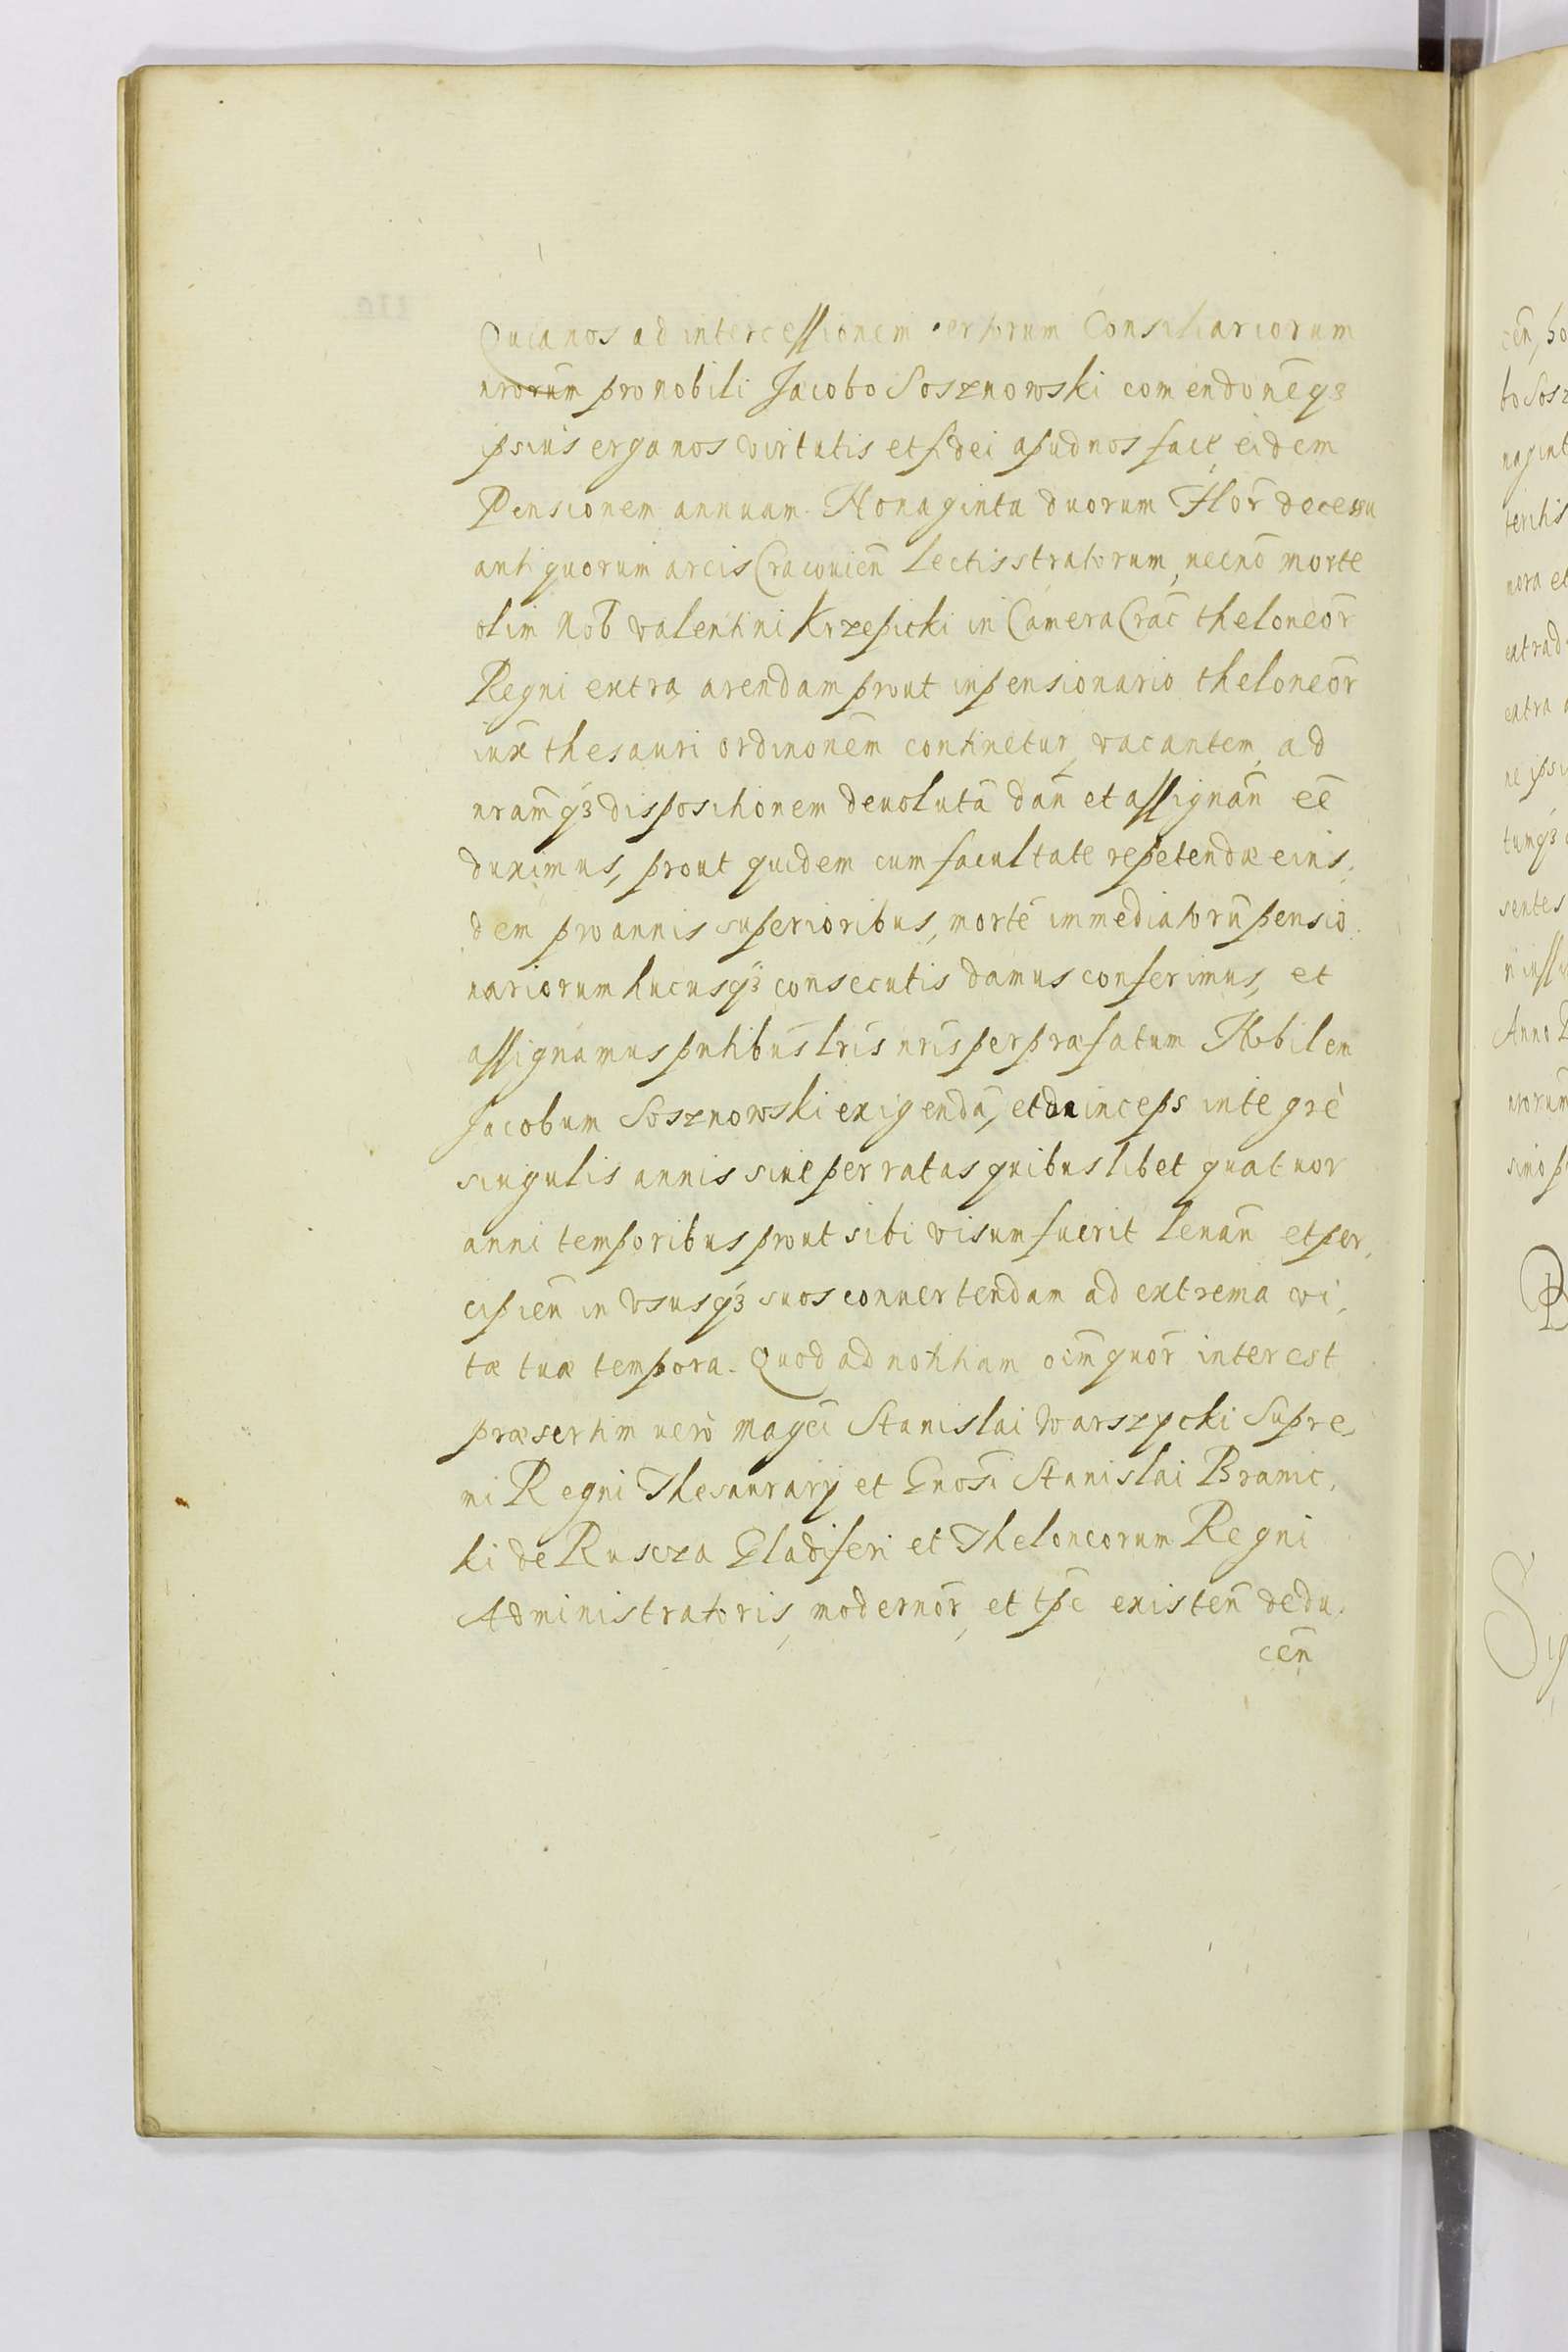 Quia nos ad intercessionem certorum Consiliariorum
nrorum pro nobili Jacobo Sosznowski comendonēqꝫ
ipsius erga nos virtutis et fidei apud nos fact eidem
Pensionem annuam Nonaginta duorum Flor decessu
antiquorum arcis Cracouien̄ Lectisstratorum, necnō morte
olim Nob Valentini Krzepicki in Camera Crac̄ theloneor̄
Regni extra arendam prout in pensionario theloneor̄
iux̄ thesauri ordinonēm continetur, vacantem, ad
nram̄qꝫ dispositionem deuolutā dan̄ et assignan̄ eē̄
duximus, prout quidem cum facultate repetendæ eius,
dem pro annis superioribus, morte immediatorū pensio
nariorum hucusqꝫ consecutis damus conferimus, et
assignamus pn̄tibus lris nris per præfatum Nobilem
Jacobum Sosznowski exigendā, et deinceps integrè
singulis annis siue per ratas quibuslibet quatuor
anni temporibus prout sibi visum fuerit leuan̄ et per,
cipien̄ in vsusqꝫ suos conuertendam ad extrema vi,
tæ tuæ tempora. Quod ad notitiam oīm quor̄ interest
præsertim verò Magci Stanislai Warszycki Supre,
mi Regni Thesaurarij et Gnosi Stanislai Branic,
ki de Ruscza Gladiferi et Theloneorum Regni
Administratoris, modernor̄, et tp̄e existen̄ dedu,
cen̄
cen̄, ho
bo Sosz
nagint
teritis
nora et
extrad
extra a
ne ipsi
tumqꝫ
sentes
Anno D
norum
simo p